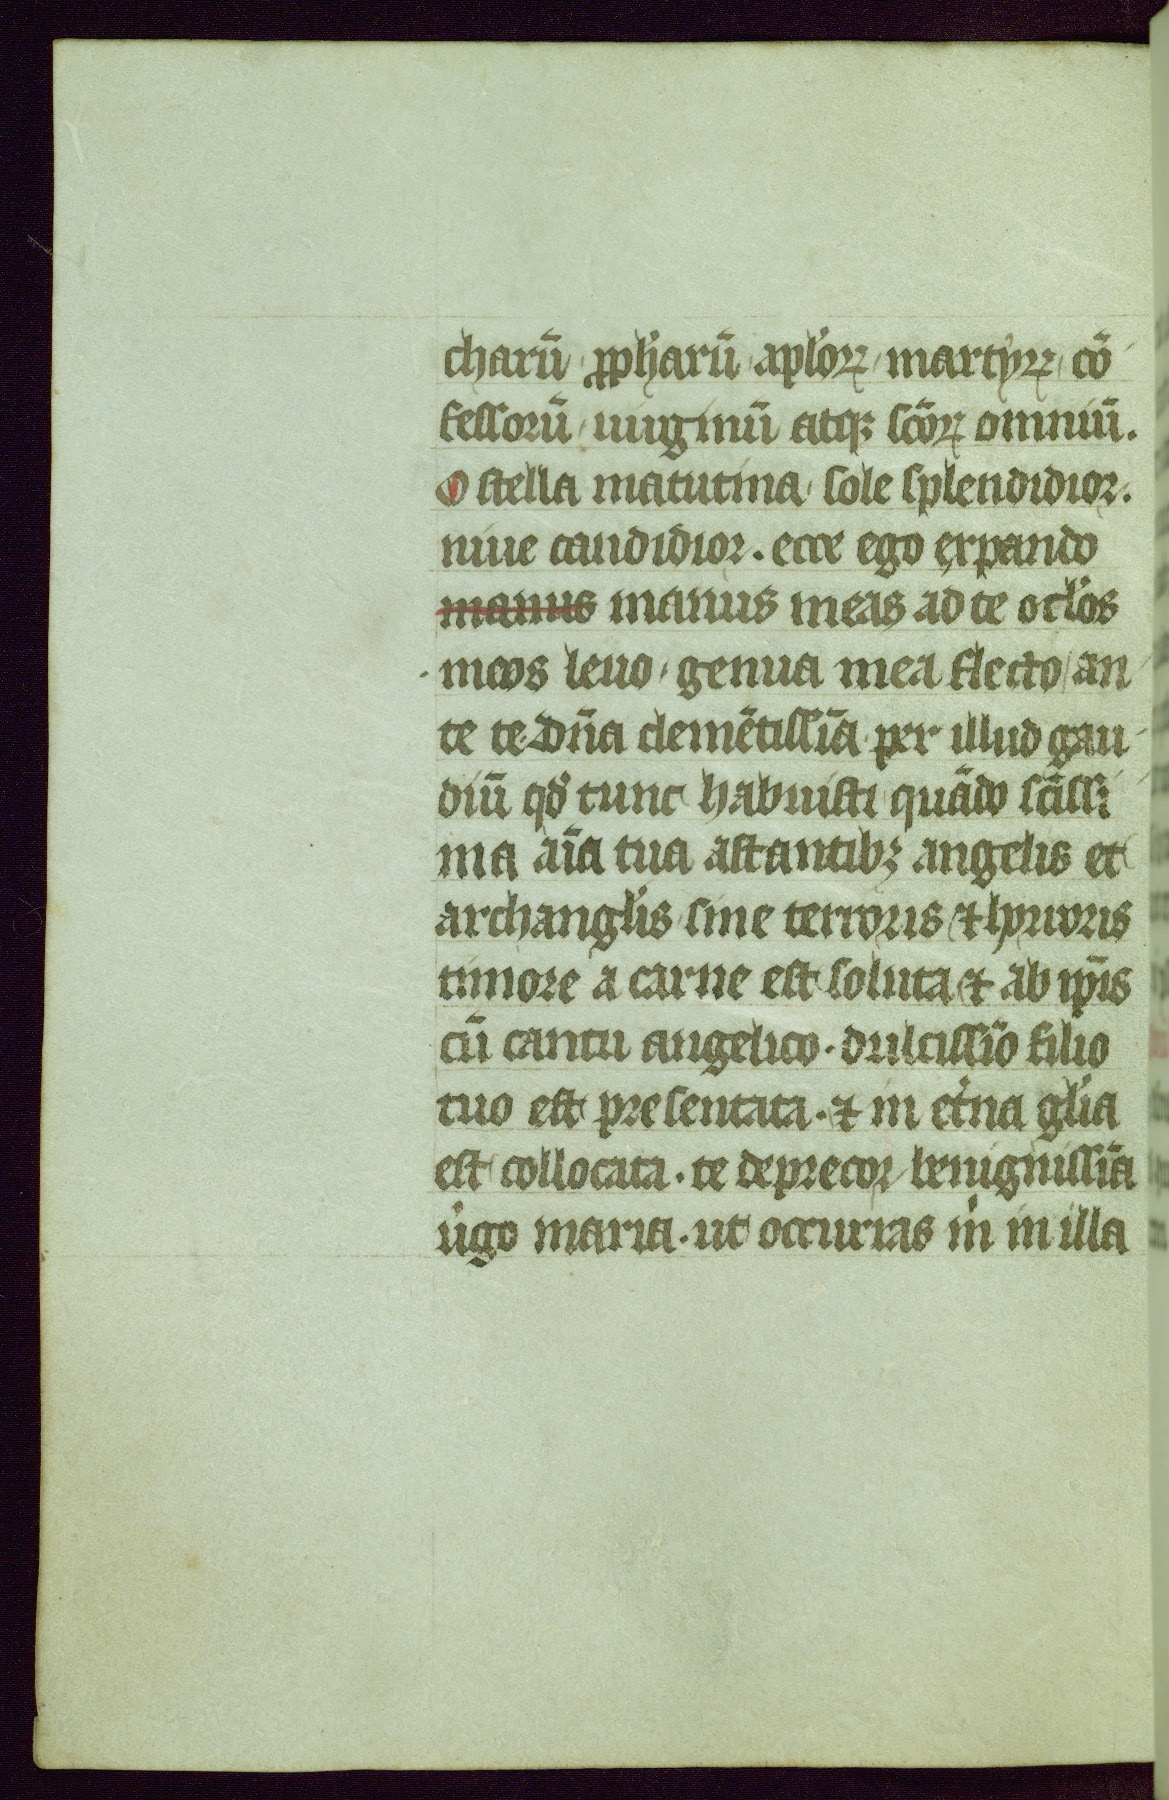 charū ꝓph̄arū apl̄oꝝ martyꝝ cō
fessorū uirginū atqꝫ sc̄oꝝ omniū.
O stella matutina sole splendidior.
niue candidior. ecce ego expando
manus manus meas ad te ocl̄os
meos leuo genua mea flecto an
te te Dn̄a clemētissīa per illud gau
diū qd̄ tunc habuisti quādo sc̄issi
ma aīa tua astantibꝫ angelis et
archangl̄is sine terroris ⁊ horroris
timore a carne est soluta ⁊ ab ip̄is
cū cantu angelico. dulcissīo filio
tuo est presentata. ⁊ in et̄na gl̄ia
est collocata. te deprecor benignissīa
u̇go maria. ut occurras m̄ in illa